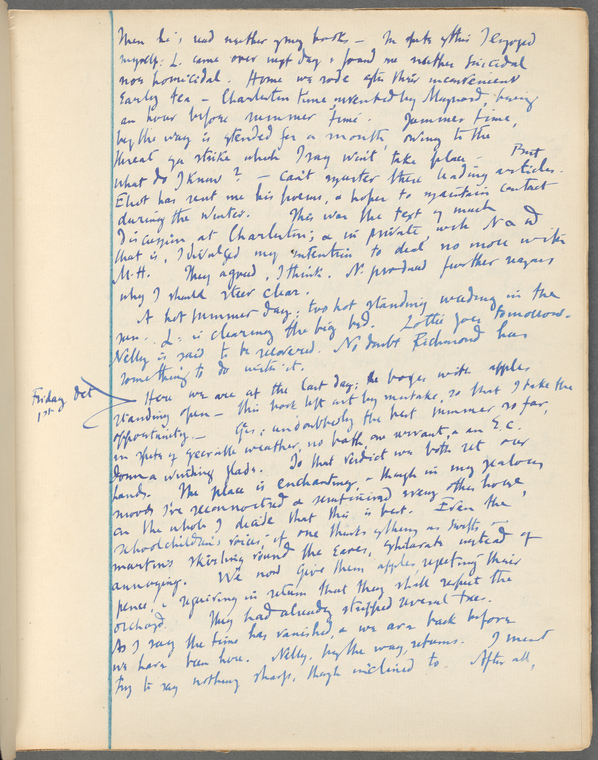 Then he's read neither of my books — In spite of this I enjoyed
myself: L. came over next day & found me neither suicidal
nor homicidal. Home we rode after their inconvenient
early tea — Charleston time invented by Maynard, being
an hour before summer time. Summer time,
by the way is extended for a month, owing to the
threat of a strike which I say won't take place. But
what do I know? — can't master these leading articles.
Eliot has sent me his poems, & hopes to maintain contact
during the winter. This was the text of much
discussion at Charleston; & in private with N & D
that is, I divulged my intention to deal no more with
M.H. They agreed, I think. N. produced further reasons
why I should steer clear.
A hot summer day; too hot standing weeding in the
sun. L. is clearing the big bed. Lottie goes tomorrow.
Nelly is said to be recovered. No doubt Richmond has
something to do with it.
Friday Oct
1st
Here we are at the last day; the boxes with apples
standing open — this book left out by mistake, so that I take the
opportunity. — Yes; undoubtedly the best summer so far,
in spite of execrable weather, no bath, one servant, & an E.C.
down a winding glade. To that verdict we both set our
hands. The place is enchanting, & though in my jealous
moods I've reconnoitred & scrutinised every other house
on the whole I decide that this is best. Even the
schoolchildren's voices, if one thinks of them as swifts, &
martins skirling round the eaves, exhilarate instead of
annoying. We now give them apples, rejecting their
pence, & requiring in return that they shall respect the
orchard. They had already stripped several trees.
As I say the time has vanished, & we are back before
we have been here. Nelly, by the way, returns. I must
try to say nothing sharp, though inclined to. After all,